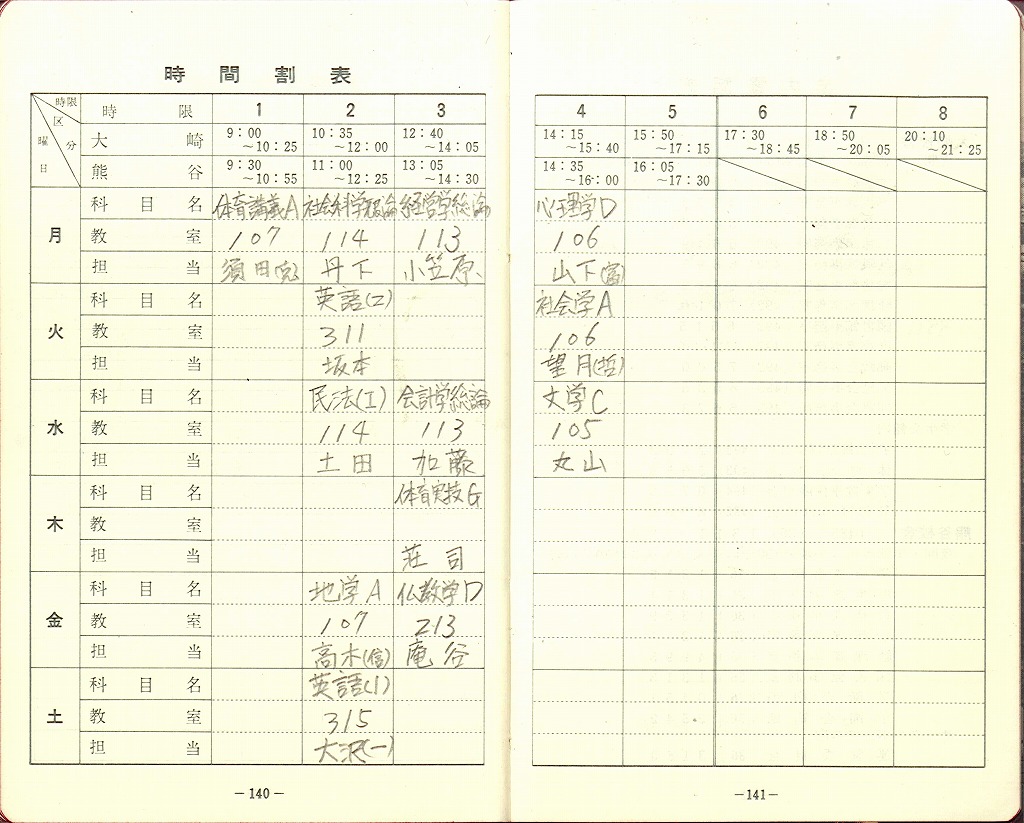 時間割表
時限 区分 曜日 時限 1 2 3 4 5 6 7 8
大崎 9:00~10:25 10:35~12:00 12:40~14:05 14:15~15:40 15:50~17:15 17:30~18:45 18:50~20:05 20:10~21:25
熊谷 9:30~10:55 11:00~12:25 13:05~14:30 14:35~16:00 16:05~17:30
月 科目名 体育講義A 社会科学概論 経営学総論 心理学D
教室 107 114 113 106
担当 須田 丹下 小笠原 山下(富)
火 科目名 英語(2) 社会学A
教室 311 106
担当 坂本 望月(哲)
水 科目名 民法(I) 会計学総論 文学C
教室 114 113 105
担当 土田 加藤 丸山
木 科目名 体育実技G
教室
担当 荘司
金 科目名 地学A 仏教学D
教室 107 213
担当 高木(信) 庵谷
土 科目名 英語(1)
教室 315
担当 大沢(一)
-140-
-141-